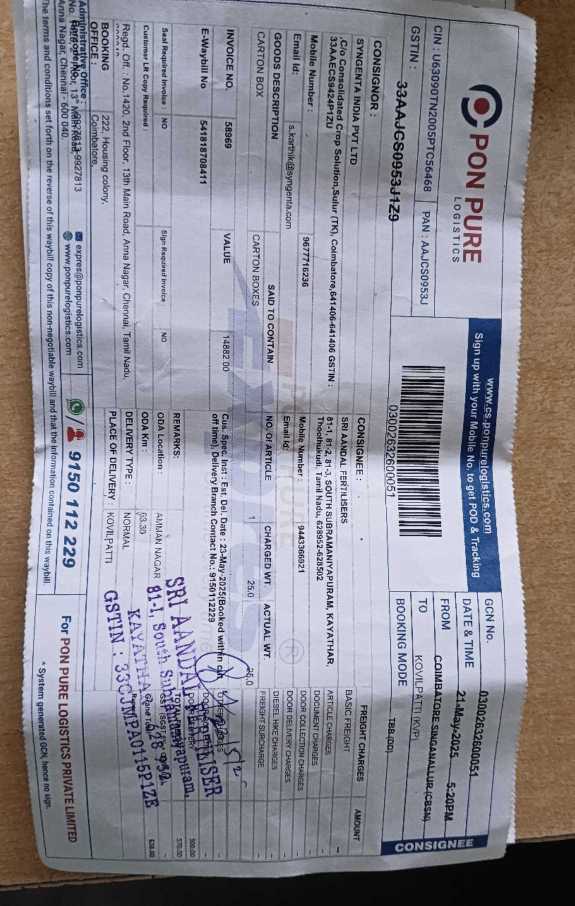 PON PURE
LOGISTICS
CIN : U63090TN2005PTC56468
PAN : AAJCS0953J
GSTIN :
33AAJCS0953J1Z9
www.cs-ponpurelogistics.com
Sign up with your Mobile No. to get POD & Tracking
03002632600051
GCN No.
03002632600051
DATE & TIME
21-May-2025 5:20PM
FROM
COIMBATORE SINGANALLUR (CBSN)
TO
KOVILPATTI (KVP)
BOOKING MODE
TBB (DD)
CONSIGNEE
CONSIGNOR :
SYNGENTA INDIA PVT LTD
C/o Consolidated Crop Solution,Sulur (TK), Coimbatore,641406-641406 GSTIN :
33AAECS9424P1ZU
Mobile Number :
9677716236
Email Id:
s.karthik@syngenta.com
GOODS DESCRIPTION
SAID TO CONTAIN
CARTON BOX
CARTON BOXES
INVOICE NO.
58969
VALUE
14882.00
E-Waybill No
541818708411
Seal Required Invoice :
NO
Sign Required Invoice
NO
Customer LR Copy Required
CONSIGNEE :
SRI AANDAL FERTILISERS
81-1, 81-2, 81-3, SOUTH SUBRAMANIYAPURAM, KAYATHAR,
Thoothukudi, Tamil Nadu, 628952-628502
Mobile Number :
9443366921
Email Id:
NO. Of ARTICLE
CHARGED WT
ACTUAL WT
1
25.0
25.0
Cus. Spec. Inst : Est. Del. Date : 23-May-2025(Booked within cut
off time), Delivery Branch Contact No.: 9150112229
REMARKS:
ODA Location :
AMMAN NAGAR
ODA Km :
63.30
DELIVERY TYPE :
NORMAL
PLACE OF DELIVERY :
KOVILPATTI
FREIGHT CHARGES
AMOUNT
BASIC FREIGHT
ARTICLE CHARGES
DOCUMENT CHARGES
DOOR COLLECTION CHARGES
DOOR DELIVERY CHARGES
DIESEL HIKE CHARGES
FREIGHT SURCHARGE
SRI AANDAL FERTILISER
81-1, South Subramaniyapuram,
KAYATHAR - 628 952.
GSTIN : 33CJMPA0115P1ZE
Regd. Off. : No.1420, 2nd Floor, 13th Main Road, Anna Nagar, Chennai, Tamil Nadu,
BOOKING
OFFICE :
222, Housing colony,
Coimbatore,
Administrative Office :
Anna Nagar, Chennai - 600 040.
expres@ponpurelogistics.com
www.ponpurelogistics.com
9150 112 229
For PON PURE LOGISTICS PRIVATE LIMITED
The terms and conditions set forth on the reverse of this waybill copy of this non-negotiable waybill and that the information contained on this waybill
* System generated GCN, hence no sign.